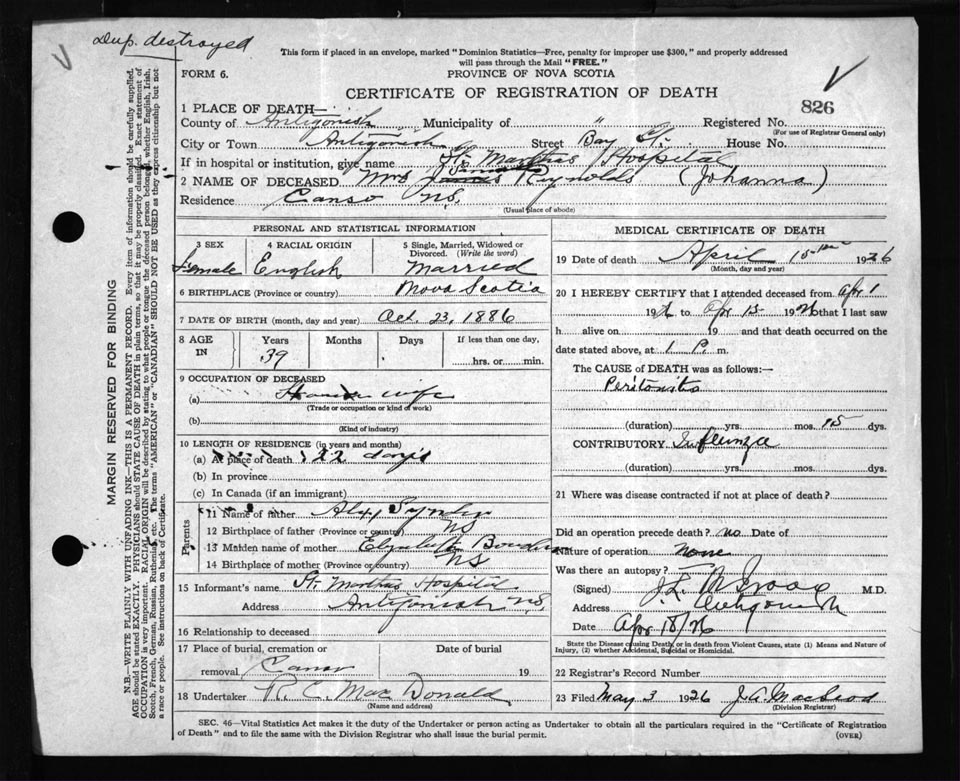 Dup. destroyed
This form if placed in an envelope, marked "Dominion Statistics—Free, penalty for improper use $300," and properly addressed
will pass through the Mail "FREE."
FORM 6.
PROVINCE OF NOVA SCOTIA
CERTIFICATE OF REGISTRATION OF DEATH
826
1 PLACE OF DEATH—
County of Antigonish Municipality of " Registered No.
(For use of Registrar General only)
City or Town Antigonish Street Bay St. House No.
If in hospital or institution, give name St. Marthas Hospital
2 NAME OF DECEASED Mrs James Reynolds (Johanna)
Residence Canso N.S.
(Usual place of abode)
PERSONAL AND STATISTICAL INFORMATION
3 SEX 4 RACIAL ORIGIN 5 Single, Married, Widowed or Divorced. (Write the word)
Female English Married
6 BIRTHPLACE (Province or country) Nova Scotia
7 DATE OF BIRTH (month, day and year) Oct. 23, 1886
8 AGE IN Years Months Days If less than one day,
39 hrs. or min.
9 OCCUPATION OF DECEASED
(a) House wife
(Trade or occupation or kind of work)
(b)
(Kind of industry)
10 LENGTH OF RESIDENCE (in years and months)
(a) At place of death 22 days
(b) In province
(c) In Canada (if an immigrant)
Parents
11 Name of father Alex
12 Birthplace of father (Province or country) NS
13 Maiden name of mother Elizabeth
14 Birthplace of mother (Province or country) NS
15 Informant's name St. Marthas Hospital
Address Antigonish N.S.
16 Relationship to deceased
17 Place of burial, cremation or removal Canso Date of burial 19
18 Undertaker R. C. MacDonald
(Name and address)
MEDICAL CERTIFICATE OF DEATH
19 Date of death April 15 1926
(Month, day and year)
20 I HEREBY CERTIFY that I attended deceased from Apr 1
1926 to Apr 15 1926 that I last saw
h alive on 19 and that death occurred on
date stated above, at 1 P. m.
The CAUSE of DEATH was as follows:—
Peritonitis
(duration) yrs. mos. 15 dys.
CONTRIBUTORY Influenza
(duration) yrs. mos. dys.
21 Where was disease contracted if not at place of death?
Did an operation precede death? no Date of
Nature of operation None
Was there an autopsy?
(Signed) M.D.
Address Antigonish
Date Apr 18/26
State the Disease causing Death, or in death from Violent Causes, state (1) Means and Nature of
Injury, (2) whether Accidental, Suicidal or Homicidal.
22 Registrar's Record Number
23 Filed May 3 1926 J. A. MacLeod
(Division Registrar)
SEC. 46—Vital Statistics Act makes it the duty of the Undertaker or person acting as Undertaker to obtain all the particulars required in the "Certificate of Registration
of Death" and to file the same with the Division Registrar who shall issue the burial permit.
(OVER)
MARGIN RESERVED FOR BINDING
N.B.—WRITE PLAINLY WITH UNFADING INK—THIS IS A PERMANENT RECORD. Every item of information should be carefully supplied.
AGE should be stated EXACTLY. PHYSICIANS should STATE CAUSE OF DEATH in plain terms, so that it may be properly classified. Exact statement of
OCCUPATION is very important. RACIAL ORIGIN will be described by stating to what people or tongue the deceased person belonged, whether English, Irish,
Scotch, French, German, Russian, Ruthenian, etc. The terms "AMERICAN" or "CANADIAN" SHOULD NOT BE USED as they express citizenship but not
a race or people. See instructions on back of Certificate.